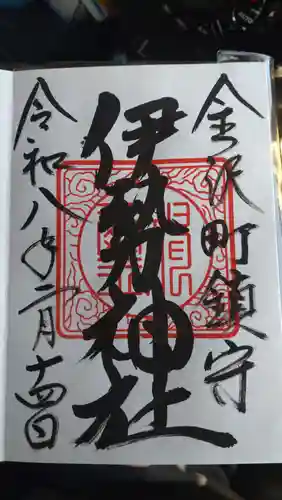 金沢町鎮守
伊勢神社
令和八年二月十四日